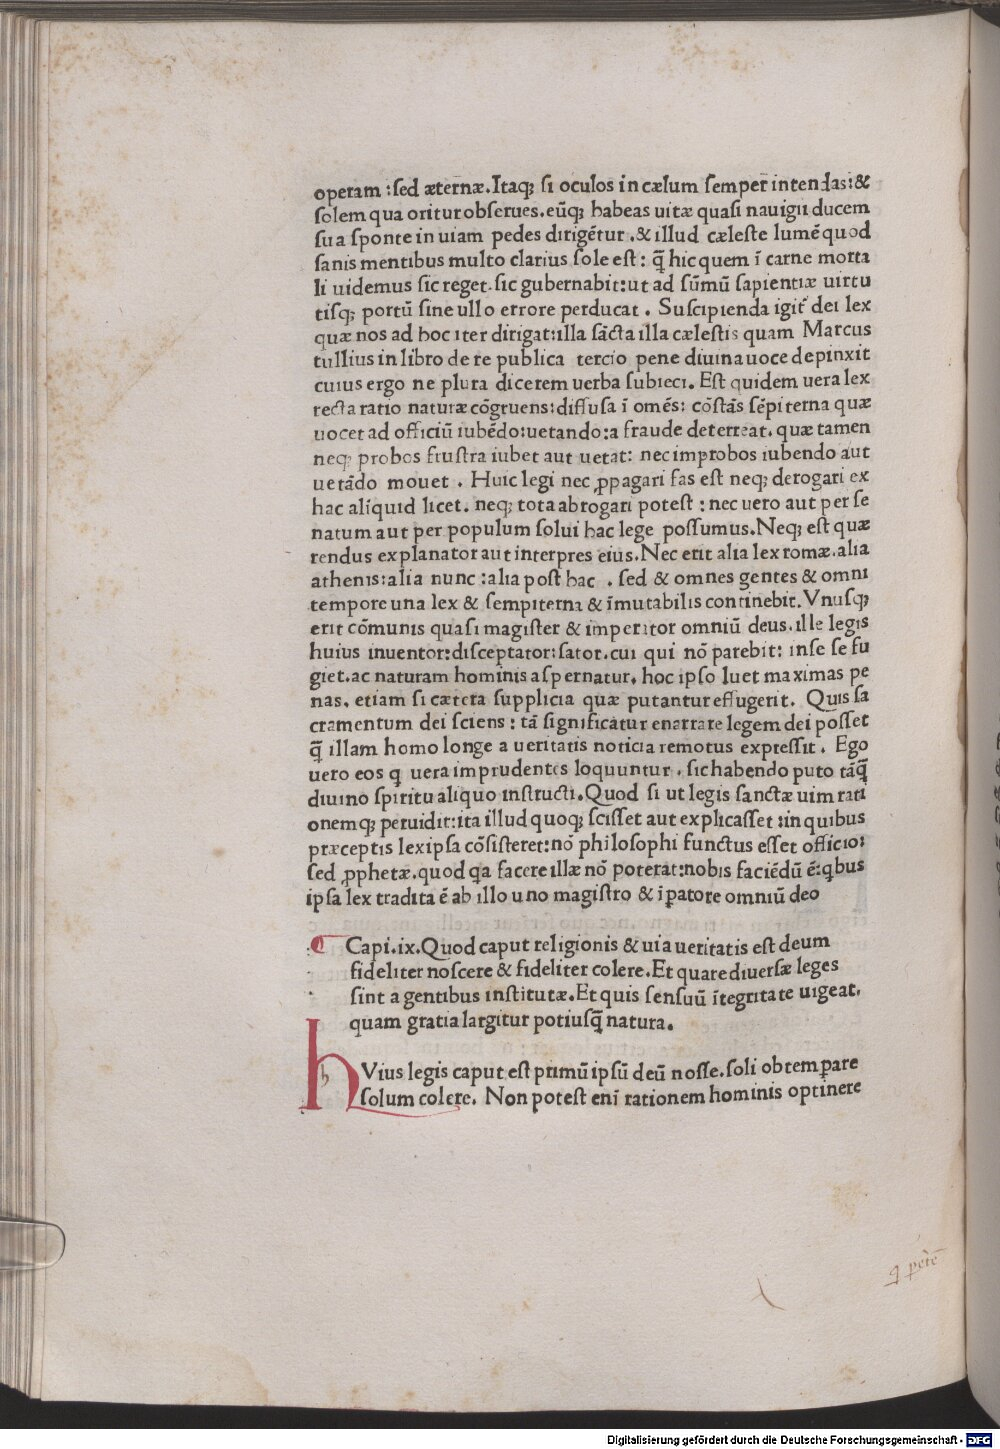 operam :sed æternæ.Itaq; si oculos in cælum semper intendas:&
solem qua oritur obserues.eūq; habeas uitæ quasi nauigii ducem
sua sponte in uiam pedes dirigētur .& illud cæleste lumē quod
sanis mentibus multo clarius sole est: q̄ hic quem ī carne morta
li uidemus sic reget.sic gubernabit:ut ad sūmū sapientiæ uirtu
tisq; portū sine ullo errore perducat . Suscipienda igit̄ dei lex
quæ nos ad hoc iter dirigat:illa sācta illa cælestis quam Marcus
tullius in libro de re publica tercio pene diuina uoce depinxit
cuius ergo ne plura dicerem uerba subieci. Est quidem uera lex
recta ratio naturæ cōgruens:diffusa ī omēs: cōstās sēpiterna quæ
uocet ad officiū iubēdo:uetando:a fraude deterreat. quæ tamen
neq; probos frustra iubet aut uetat: nec improbos iubendo aut
uetādo mouet . Huic legi nec ꝓpagari fas est neq; derogari ex
hac aliquid licet. neq; tota abrogari potest : nec uero aut per se
natum aut per populum solui hac lege possumus.Neq; est quæ
rendus explanator aut interpres eius.Nec erit alia lex romæ.alia
athenis:alia nunc :alia post hac . sed & omnes gentes & omni
tempore una lex & sempiterna & īmutabilis continebit.Vnusq;
erit cōmunis quasi magister & imperator omniū deus.ille legis
huius inuentor:disceptator:sator.cui qui nō parebit: inse se fu
giet.ac naturam hominis aspernatur, hoc ipso luet maximas pe
nas. etiam si cætera supplicia quæ putantur effugerit. Quis sa
cramentum dei sciens : tā significatur enarrare legem dei posset
q̄ illam homo longe a ueritatis noticia remotus expressit . Ego
uero eos q uera imprudentes loquuntur . sic habendo puto tāq̄
diuino spiritu aliquo instructi.Quod si ut legis sanctæ uim rati
onemq; peruidit:ita illud quoq; scisset aut explicasset :in quibus
præceptis lex ipsa cōsisteret:nō philosophi functus esset officio:
sed ꝓphetæ.quod qa facere illæ nō poterat:nobis faciēdū ē:qbus
ipsa lex tradita ē ab illo uno magistro & īpatore omniū deo
Capi.ix.Quod caput religionis & uia ueritatis est deum
fideliter noscere & fideliter colere.Et quare diuersæ leges
sint a gentibus institutæ.Et quis sensuū ītegritate uigeat.
quam gratia largitur potiusq̄ natura.
hVius legis caput est primū ipsū deū nosse.soli obtemꝑare
solum colere. Non potest enī rationem hominis optinere
Digitalisierung gefördert durch die Deutsche Forschungsgemeinschaft - DFG